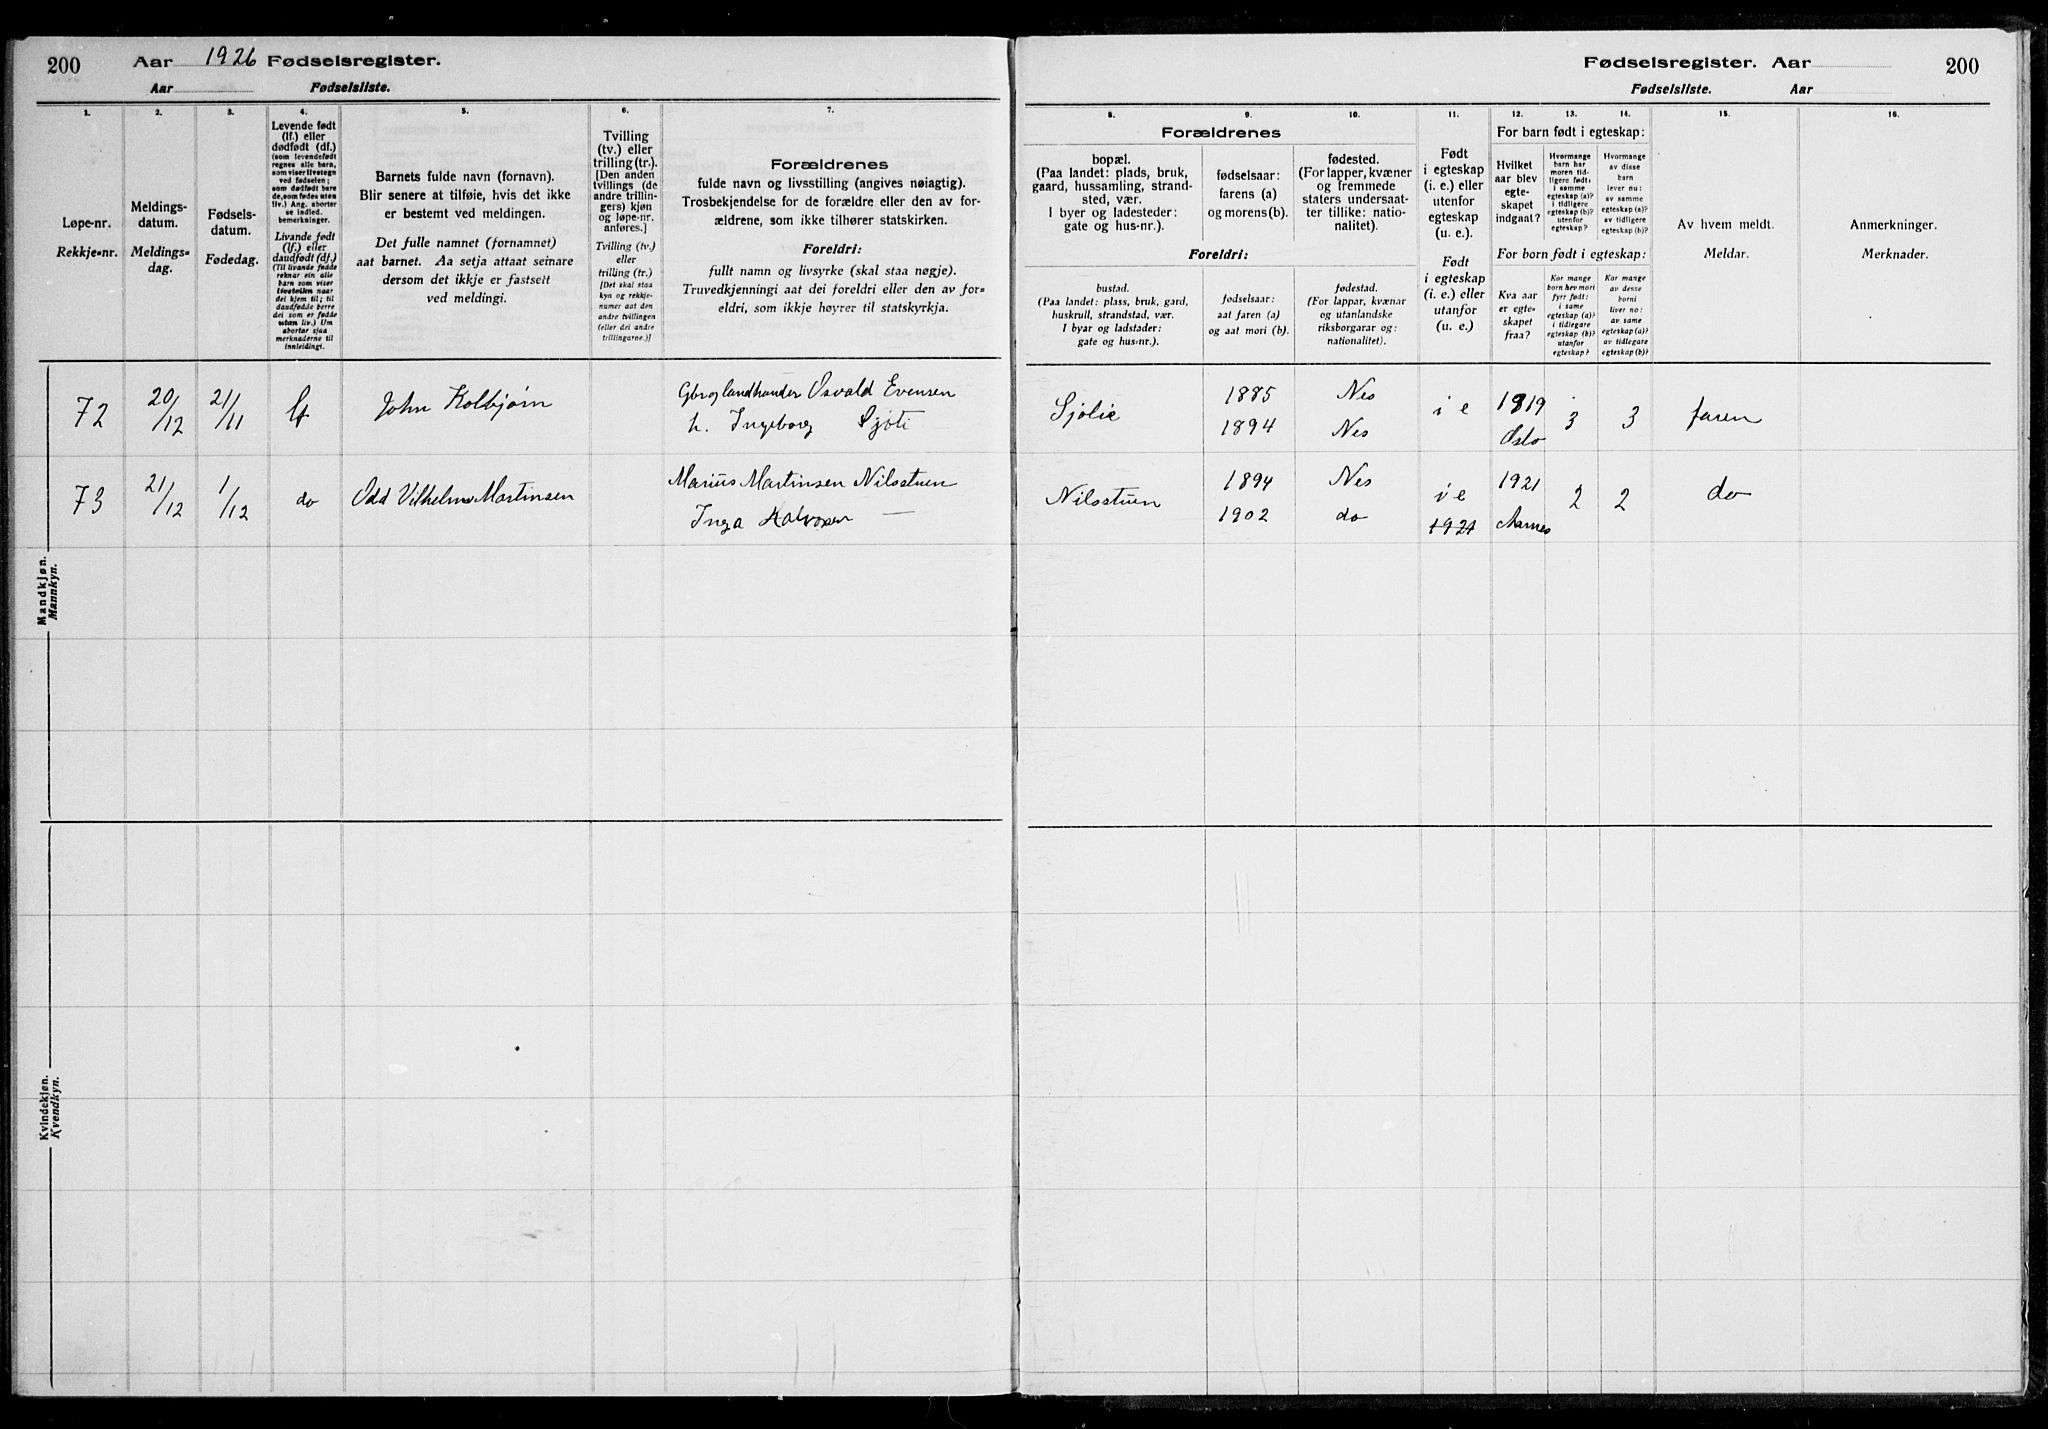 200 Aar 1926 Fødselsregister.
Aar Fødselsliste.
1.
Løpe-nr.
Rekkje-nr.
2.
Meldings-
datum.
Meldings-
dag.
3.
Fødsels-
datum.
Fødedag.
4.
Levende født
(lf.) eller
dødfødt (df.)
(som levendefødt
regnes alle barn,
som viser livstegn
ved fødselen;
som dødfødt bare
de, som fødes uten
liv.) Ang. aborter
se indled.
bemerkninger.
Livande født
(lf.) eller
daudfødt (df.)
(Til livande fødde
reknar ein alle
barn som viser
livsteikn naar
dei kjem til; til
daudfødde berre
dei som er fødde
utan liv.) Um
abortar sjaa
merknaderne til
innleidingi.
5.
Barnets fulde navn (fornavn).
Blir senere at tilføie, hvis det ikke
er bestemt ved meldingen.
Det fulle namnet (fornamnet)
aat barnet. Aa setja attaat seinare
dersom det ikkje er fastsett
ved meldingi.
6.
Tvilling
(tv.) eller
trilling (tr.).
[Den anden
tvillings (de
andre trillin-
gers) kjøn
og løpe-nr.
anføres.]
Tvilling (tv.)
eller
trilling (tr.)
[Det skal staa
kyn og rekkje-
numer aat den
andre tvillingen
(eller dei andre
trillingarne.)]
7.
Forældrenes
fulde navn og livsstilling (angives nøiagtig).
Trosbekjendelse for de forældre eller den av for-
ældrene, som ikke tilhører statskirken.
Foreldri:
fullt namn og livsyrke (skal staa nøgje).
Truvedkjenningi aat dei foreldri eller den av for-
eldri, som ikkje høyrer til statskyrkja.
Mandkjøn.
Mannkyn.
72 20/12 21/11 lf John Kolbjørn Gbr og landhandler Osvald Evensen
h. Ingeborg Sjøli
73 21/12 1/12 do Odd Vilhelm Martinsen Marius Martinsen Nilsstuen
Inga —
Kvindekjøn.
Kvendkyn.
Fødselsregister. Aar 200
Fødselsliste. Aar
8.
Forældrenes
bopæl.
(Paa landet: plads, bruk,
gaard, hussamling, strand-
sted, vær.
I byer og ladesteder:
gate og hus-nr.).
Foreldri:
bustad.
(Paa landet: plass, bruk, gard,
huskrull, strandstad, vær.
I byar og ladstader:
gate og hus-nr.).
9.
fødselsaar:
farens (a)
og morens (b).
fødselsaar:
aat faren (a)
og aat mori (b).
10.
fødested.
(For lapper, kvæner
og fremmede
staters undersaat-
ter tillike: natio-
nalitet).
fødestad.
(For lappar, kvænar
og utanlandske
riksborgarar og:
nationalitet).
11.
Født
i egteskap
(i. e.) eller
utenfor
egteskap
(u. e.).
Født
i egteskap
(i. e.) eller
utanfor
(u. e.)
For barn født i egteskap:
12.
Hvilket
aar blev
egte-
skapet
indgaat?
13.
Hvormange
barn har
moren tid-
ligere født:
i samme
egteskap (a)?
i tidligere
egteskap (b)?
utenfor
egteskap?
14.
Hvormange
av disse
barn
lever nu:
av samme
egteskap (a)?
av tidligere
egteskap (b)?
For born født i egteskap:
Kva aar
er egte-
skapet
fraa?
Kor mange
born hev mori
fyrr født:
i same
egteskap (a)?
i tidlegare
egteskap (b)?
utanfor
egteskap?
Kor mange
av desse
borni
liver no:
av same
egteskap (a)?
av tidlegare
egteskap (b)?
15.
Av hvem meldt.
Meldar.
16.
Anmerkninger.
Merknader.
Sjølie 1885 Nes i e 1919 3 3 faren
1894 Nes Oslo
Nilsstuen 1894 Nes i e 1921 2 2 do
1902 do 1921 Aarnes